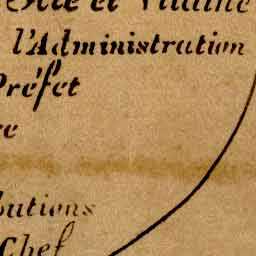 Ille et Vilaine
l'Administration
Préfet
ce
butions
Chef